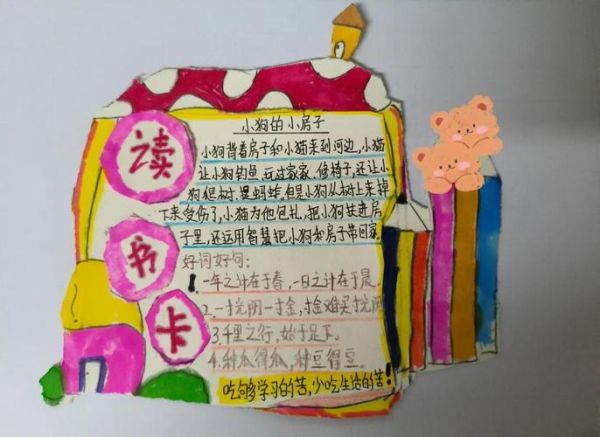 读
书
卡
小狗的小房子
小狗背着房子和小猫来到河边,小猫
让小狗钓鱼、玩过家家、修椅子,还让小
狗爬树、黑蚂蚱,但是小狗从树上来掉
下来受伤了,小猫为他包扎,把小狗扶进房
子里,还运用智慧把小狗和房子带回家
好词好句:
1.一年之计在于春,一日之计在于晨
2.一寸光阴一寸金,寸金难买寸光阴
3.千里之行,始于足下。
4.种瓜得瓜,种豆得豆。
吃够学习的苦,少吃生活的苦!